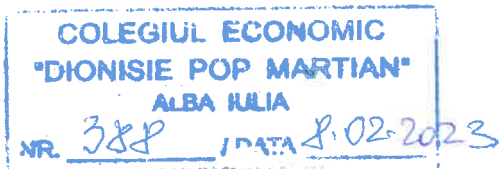 COLEGIUL ECONOMIC
"DIONISIE POP MARTIAN"
ALBA IULIA
NR. 388 / DATA 8.02.2023